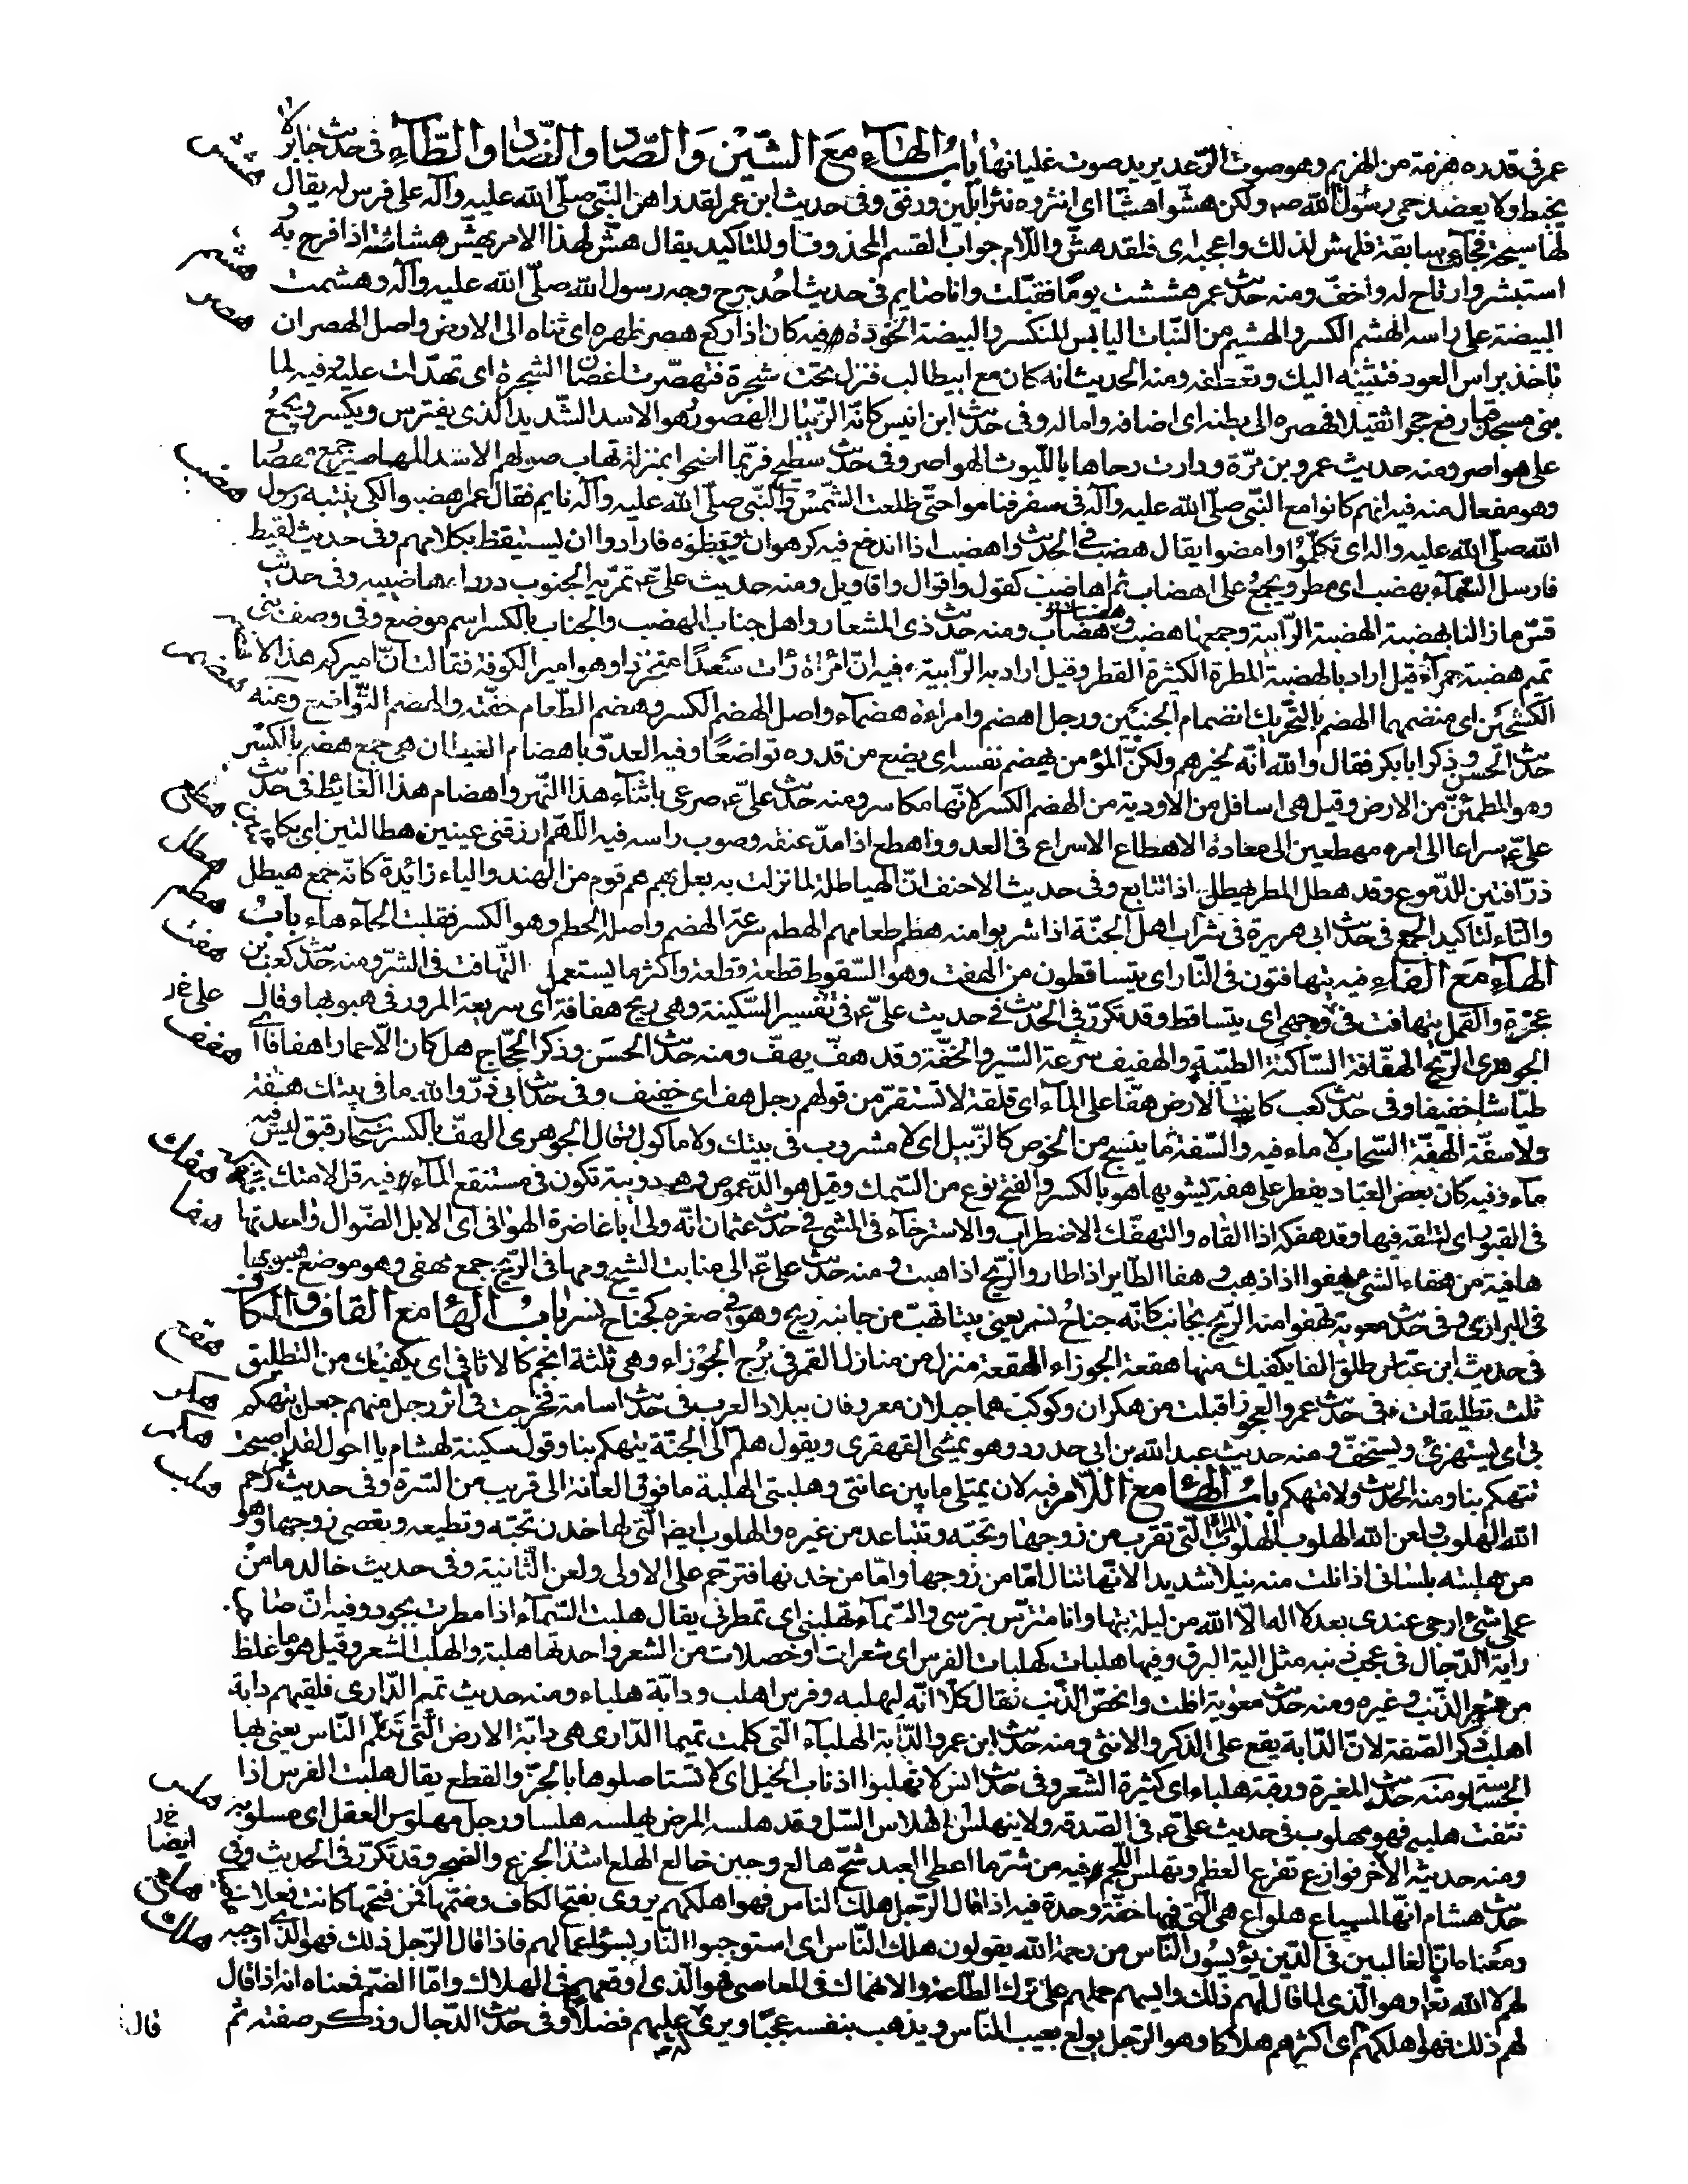 عمر فى قدره هزمة من الهزيم وهو صوت الرّعد يريد صوت غليانها بابُ الهاءِ مَعَ الشّيْن وَالصّاد والضّاد والطّاءِ فى حديث جابر لا
يخبط ولا يعضد حمى رسول الله ص ولكن هشّوا هشّا اى انثروه نثرا بلين ورفق وفى حديث ابن عمر لقد راهن النّبى صلّى الله عليه وآله على فرس له يقال
لها سبحة فجاءت سابقة فلهش لذلك واعجبه اى فلقد هشّ واللّام جواب القسم المحذوف او للتاكيد يقال هشّ لهذا الامر يهشّ هشاشة اذا فرح به و
استبشر وارتاح له واخفّ ومنه حديث عمر هششت يومًا فقبّلت وانا صايم فى حديث احُد جرح وجه رسول الله صلّى الله عليه وآله وهشمت
البيضة على راسه الهشم الكسر والهشيم من النّبات اليابس المنكسر والبيضة الخوذة فيه كان اذا ركع هصر ظهره اى ثناه الى الارض واصل الهصر ان
تاخذ براس العود فتثنيه اليك وتعطفه ومنه الحديث انه كان مع ابيطالب فنزل تحت شجرة فتهصّرت اغصان الشجرة اى تهدّلت عليه وفيه لما
بنى مسجد قبا رفع حجرا ثقيلا فهصره الى بطنه اى اضافه واماله وفى حديث ابن انيس كانّه الرّئبال الهصور هو الاسد الشّديد الذى يفترس ويكسر ويجمعُ
على هواصر ومنه حديث عمرو بن مرّة ودارت رحاها باللّيوث الهواصر وفى حديث سطيح فربّما اضحوا بمنزلة تهاب صولهم الاسد المهاصير جمع مهصار
وهو مفعال منه فيه انهم كانوا مع النّبى صلّى الله عليه وآله فى سفر فناموا حتّى طلعت الشّمس والنّبى صلّى الله عليه وآله نايم فقال عمر اهضبوا لكى ينتبه رسول
الله صلّى الله عليه واله اى تكلّموا وامضوا يقال هضب فى الحديث واهضب اذا اندفع فيه كرهوا ان يوقظوه فارادوا ان ليستيقظ بكلامهم وفى حديث لقيط
فارسل السّماء بهضب اى مطر ويجمع على اهضاب ثم اهاضيب كقول واقوال واقاويل ومنه حديث علىّ ع تمريه الجنوب درر اهاضيبه وفى حديث
قسّ ماذا لنا بهضبة الهضبة الرّابية وجمعها هضب وهضاب ومنه حديث ذى المشعار واهل جناب الهضب والجناب بالكسر اسم موضع وفى وصف بنى
تميم هضبة حمراء قيل اراد بالهضبة المطرة الكثيرة القطر وقيل اراد به الرّابية فيه انّ امرأة رأت سَعدًا متجرّدا وهو امير الكوفة فقالت انّ اميركم هذا لاهضم
الكشحين اى منضمهما الهضم بالتّحريك انضمام الجنبين ورجل اهضم وامراءة هضماء واصل الهضم الكسر وهضم الطّعام خفّته والهضم التّواضع ومنه
حديث الحسن وذكر ابا بكر فقال والله انّه لخيرهم ولكنّ المؤمن يهضم نفسه اى يضع من قدره تواضعًا وفيه العدوّ باهضام الغيطان هى جمع هضم بالكسر
وهو المطمئنّ من الارض وقيل هى اسافل من الاودية من الهضم الكسر لانّها مكاسر ومنه حديث علىّ ع صرعى باثناء هذا النّهر واهضام هذا الغائط فى حديث
علىّ ع سراعا الى امره مهطعين الى معاده الاهطاع الاسراع فى العدو واهطع اذا مدّ عنقه وصوب راسه فيه اللّهمّ ارزقنى عينين هطالتين اى بكاءتين
ذرّافتين للدّموع وقد هطل المطر يهطل اذا تتابع وفى حديث الاحنف انّ الهياطلة لما نزلت به بعل بهم هم قوم من الهند والياء زائدة كانّه جمع هيطل
والتاء لتاكيد الجمع فى حديث ابى هريرة فى شراب اهل الجنّة اذا شربوا منه هطم طعامهم الهطم سرعة الهضم واصله الحطم وهو الكسر فقلبت الحاء هاء بابُ
الهاءِ مَعَ الفاءِ فيه يتهافتون فى النّار اى يتساقطون من الهفت وهو السّقوط قطعة قطعة واكثر ما يستعمل التّهافت فى الشرّ ومنه حديث كعب بن
عجرة والقمل يتهافت فى وجهى اى يتساقط وقد تكرّر فى الحديث فى حديث علىّ ع فى تفسير السّكينة وهى ريح هفافة اى سريعة المرور فى هبوبها وقال
الجوهرى الرّيح الهفّافة السّاكنة الطيّبة والهفيف سرعة السّير والخفّة وقد هفّ يهفّ ومنه حديث الحسَن وذكر الحجّاج هل كان الّا حمارا هفافا اى
طيّاشا خفيفا وفى حديث كعب كانت الارض هفّا على الماء اى قلقة لا تستقرّ من قولهم رجل هف اى خفيف وفى حديث ابى ذرّ والله ما فى بيتك هفّة
ولا سفّة الهفّة السّحاب لا ماء فيه والسّفة ما ينسج من الخوص كالزّبيل اى لا مشروب فى بيتك ولا ماكول وقال الجوهرى الهفّ بالكسر سحاب رقيق ليس فيه
ماء وفيه كان بعض العبّاد يفطر على هفّة يشويها هو بالكسر والفتح نوع من السّمك وقيل هو الدّعموص وهى دويبة تكون فى مستنقع الماء فيه قل لامتك
فى القبور اى لتلقه فيها وقد هفكه اذا القاه والتهفّك الاضطراب والاسترخاء فى المشى فى حديث عثمان انّه ولى ابا غاضرة الهوافى اى الابل الضّوال واحدتها
هافية من هفاء الشئ يهفوا اذا ذهب وهفا الطّاير اذا طار والرّيح اذا هبت ومنه حديث علىّ ع الى منابت الشّيح ومهافى الرّيح جمع مهفى وهو موضع هبوبها
فى البرارى وفى حديث معوية تهفوا منه الرّيح بجانب كانّه جناح نسر يعنى بيتا تهبّ من جانبه ريح وهو فى صغره كجناح نسر بابُ الها مع القاف والكاف
فى حديث ابن عبّاس طلق الفا يكفيك منها هقعة الجوزاء الهقعة منزل من منازل القمر فى برُج الجوزاء وهى ثلثة انجم كالاثافى اى يكفيك من التطليق
ثلث تطليقات فى حديث عمر والعجوز اقبلت من هكران وكوكب هما جبلان معروفان ببلاد العرب فى حديث اسامة فخرجت فى اثر رجل منهم جعل يتهكم
بى اى يستهزئ ويستخفّ ومنه حديث عبد الله بن ابى حدرد وهو يمشى القهقرى ويقول هلمّ الى الجنّة يتهكم بنا وقول سكينة لهشام يا احول لقد اصبحت
تتهكم بنا ومنه الحديث ولا متهكم بابُ الهامع اللام فيه لان يمتلى ما بين عانتى وهلبتى الهلبة ما فوق العانة الى قريب من السّرة وفى حديث عمر رحم
الله الهلوب ولعن الله الهلوب الهلوب المراة الّتى تقرب من زوجها وتحبّه وتتباعد من غيره والهلوب ايضا الّتى لها خدن تحبّه وتطيعه وتعصى زوجها وهو
من هلبته بلسانى اذا نلت منه نيلا شديدا لانّها تنال امّا من زوجها وامّا من خدنها فترحّم على الاولى ولعن الثّانية وفى حديث خالد ما من
عملى شئ ارجى عندى بعد لا اله الّا الله من ليلة بتّها وانا متترّس بترسى والسّماء تهلبنى اى تمطرنى يقال هلبت السّماء اذا مطرت بجود وفيه انّ صاحب
راية الدّجال فى عجب ذنبه مثل الية البرق وفيها هلبات كهلبات الفرس اى شعرات او خصلات من الشعر واحدتها هلبة والهلب الشعر وقيل هو ما غلظ
من شعر الذّنب وغيره ومنه حديث معوية افلت وانحصّ الذّنب فقال كلّا انّه لبهلبه وفرس اهلب ودابّة هلباء ومنه حديث تميم الدّارى فلقيهم دابة
اهلب ذكر الصّفة لانّ الدّابة يقع على الذكر والانثى ومنه حديث ابن عمر والدّابة الهلباء الّتى كلمت تميما الدّارى هى دابّة الارض الّتى تكلّم النّاس يعنى بها
الجسّاسة ومنه حديث المغيرة ورقبة هلباء اى كثيرة الشّعر وفى حديث انس لا تهلبوا اذناب الخيل اى لا تستاصلوها بالجزّ والقطع يقال هلبت الفرس اذا
نتفت هلبه فهو مهلوب فى حديث علىّ ع فى الصّدقه ولا ينهلس الهلاس السّل وقد هلسه المرض يهلسه هلسا ورجل مهلوس العقل اى مسلوبه
ومنه حديثه الآخر نوازع تقرع العظم وتهلس اللّحم فيه من شرّ ما اعطى العبد شحّ هالع وجبن خالع الهلع اشدّ الجزع والضجر وقد تكرّر فى الحديث وفى
حديث هشام انّها لمسياع هلواع هى الّتى فيها خفّة وحدة فيه اذا قال الرّجل هلك الناس فهو اهلكهم يروى بفتح الكاف وضمّها فمن فتحها كانت فعلا
ومعناه انّ الغالبين فى الدّين يؤيسُون النّاس من رحمة الله يقولون هلك النّاس اى استوجبوا النّار بسوء اعمالهم فاذا قال الرّجل ذلك فهو الّذى اوجبه
لهم لا الله تعا او هو الّذى لما قال لهم ذلك وايسهم حملهم على ترك الطّاعة والانهماك فى المعاصى فهو الّذى اوقعهم فى الهلاك وامّا الضّم فمعناه انه اذا قال
لهم ذلك فهو اهلكهم اى اكثرهم هلاكا وهو الرّجل يولع بعيب النّاس ويذهب بنفسه عجبًا ويرى له عليهم فضلا وفى حديث الدّجال وذكر صفته ثم
قال
هشش
هشم
هصر
هضب
هضم
هطل
هطم
هفت
هفف
هفك
هفا
هقع
هكر
هكم
هلب
هلس
هلع
هلك